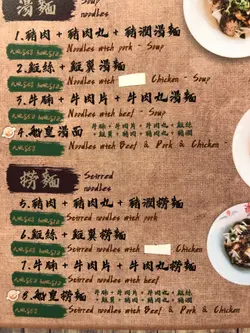 湯麵 Soup
noodles
1.豬肉 + 豬肉丸 + 豬潤湯麵
Noodles with pork - Soup
2.雞絲 + 雞翼湯麵
Noodles with Chicken - Soup
3.牛腩 + 牛肉片 + 牛肉丸湯麵
Noodles with beef - Soup
4.船皇湯面
牛腩 + 牛肉片 + 牛肉丸 + 雞絲
Noodles with Beef & Pork & Chicken -
撈麵 Stirred
noodles
5.豬肉 + 豬肉丸 + 豬潤撈麵
Stirred noodles with pork
6.雞絲 + 雞翼撈麵
Stirred noodles with Chicken
7.牛腩 + 牛肉片 + 牛肉丸撈麵
Stirred noodles with beef
8.船皇撈麵
Stirred noodles with Beef & Pork & Chicken